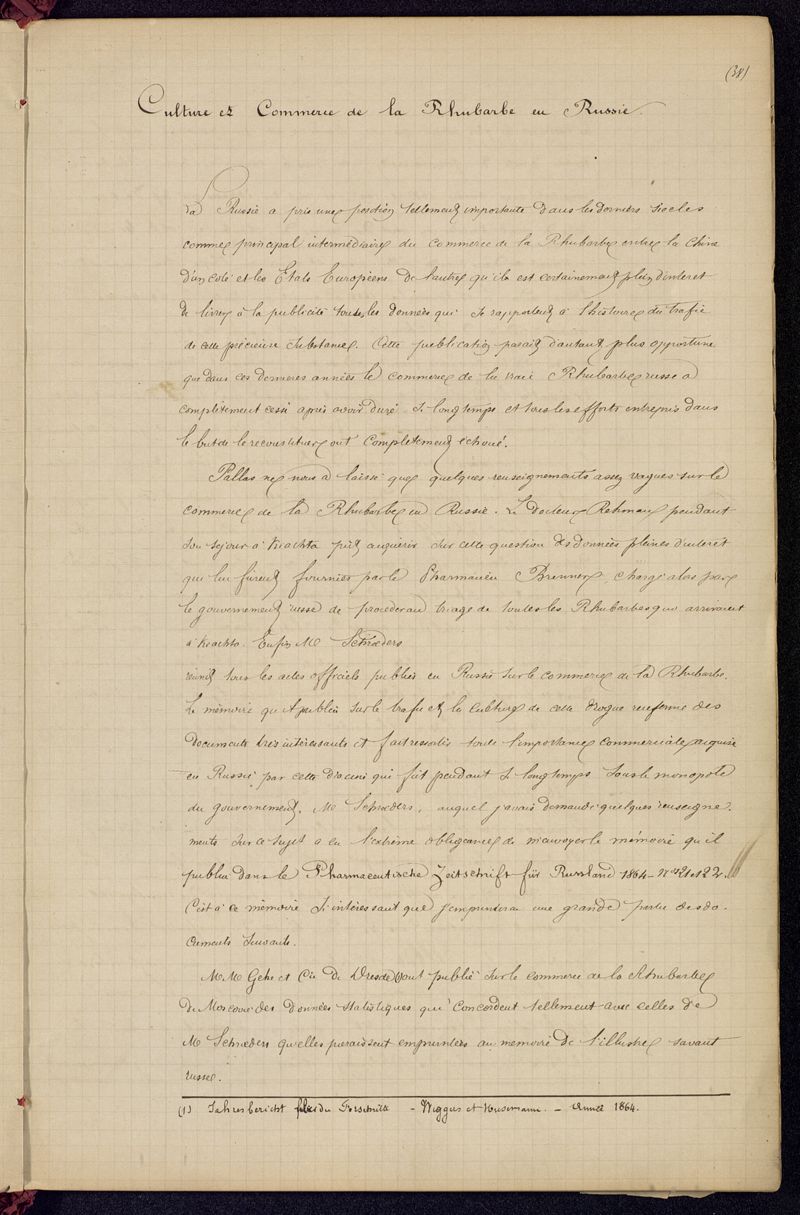 (38)
Culture et Commerce de la Rhubarbe en Russie.
La Russie a pris une position tellement importante dans les derniers siècles
comme principal intermédiaire du commerce de la Rhubarbe entre la Chine
d'un coté et les Etats Européens de l'autre qu'il est certainement plein d'interet
de livrer à la publicité toutes les données qui se rapportent à l'histoire du trafic
de cette précieuse substance. Cette publication parait d'autant plus opportune
que dans ces dernières années le commerce de la vraie Rhubarbe russe a
complètement cessé après avoir duré si longtemps et tous les efforts entrepris dans
le but de le reconstituer ont complètement échoué.
Pallas ne nous a laissé que quelques renseignements assez vagues sur le
commerce de la Rhubarbe en Russie. Le docteur Rehmann pendant
son séjour à Kiachta put acquérir sur cette question des données pleines d'interet
qui lui furent fournies par le Pharmacien Brenner, chargé alors par
le gouvernement russe de procéder au triage de toutes les Rhubarbes qui arrivaient
à Kiachta. Enfin Mr Schrœders
réunit tous les actes officiels publiés en Russie sur le commerce de la Rhubarbe.
Le mémoire qu'il publia sur le trafic et la culture de cette drogue renferme des
documents très intéressants et fait ressortir toute l'importance commerciale acquise
en Russie par cette racine qui fut pendant si longtemps sous le monopole
du gouvernement. Mr Schrœders, auquel j'avais demandé quelques renseigne-
ments sur ce sujet a eu l'extrême obligeance de m'envoyer le mémoire qu'il
publia dans le Pharmaceutische Zeitschrift für Russland 1864 - Nos 21 et 22.
C'est à ce mémoire si intéressant que j'emprunterai une grande partie des do-
cuments suivants.
M. M. Gehe et Cie de Dresde (1) ont publié sur le commerce de la Rhubarbe
de Moscovie des données statistiques qui concordent tellement avec celles de
Mr Schrœders qu'elles paraissent empruntées au mémoire de l'illustre savant
russe.
(1) Jahresbericht - Wiggers et Husemann. - Année 1864.